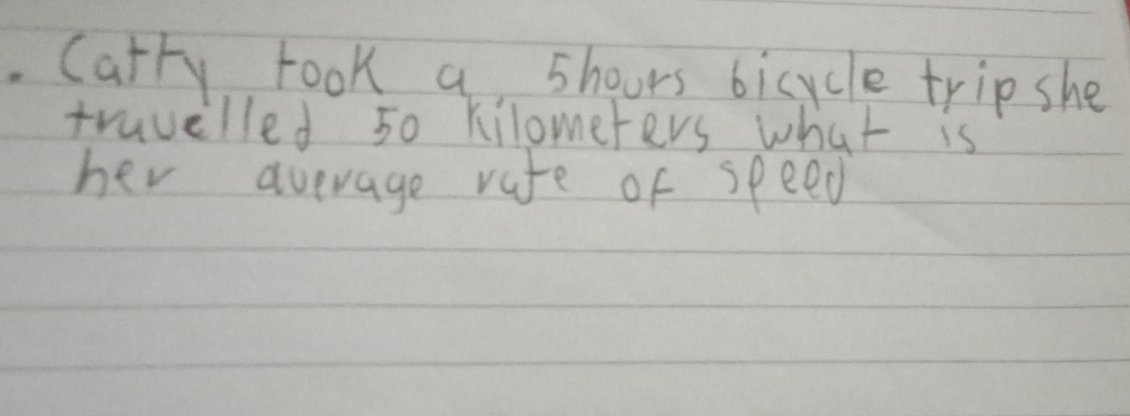 . Catty took a 5hours bicycle trip she
travelled 50 kilometers what is
her average rate of speed